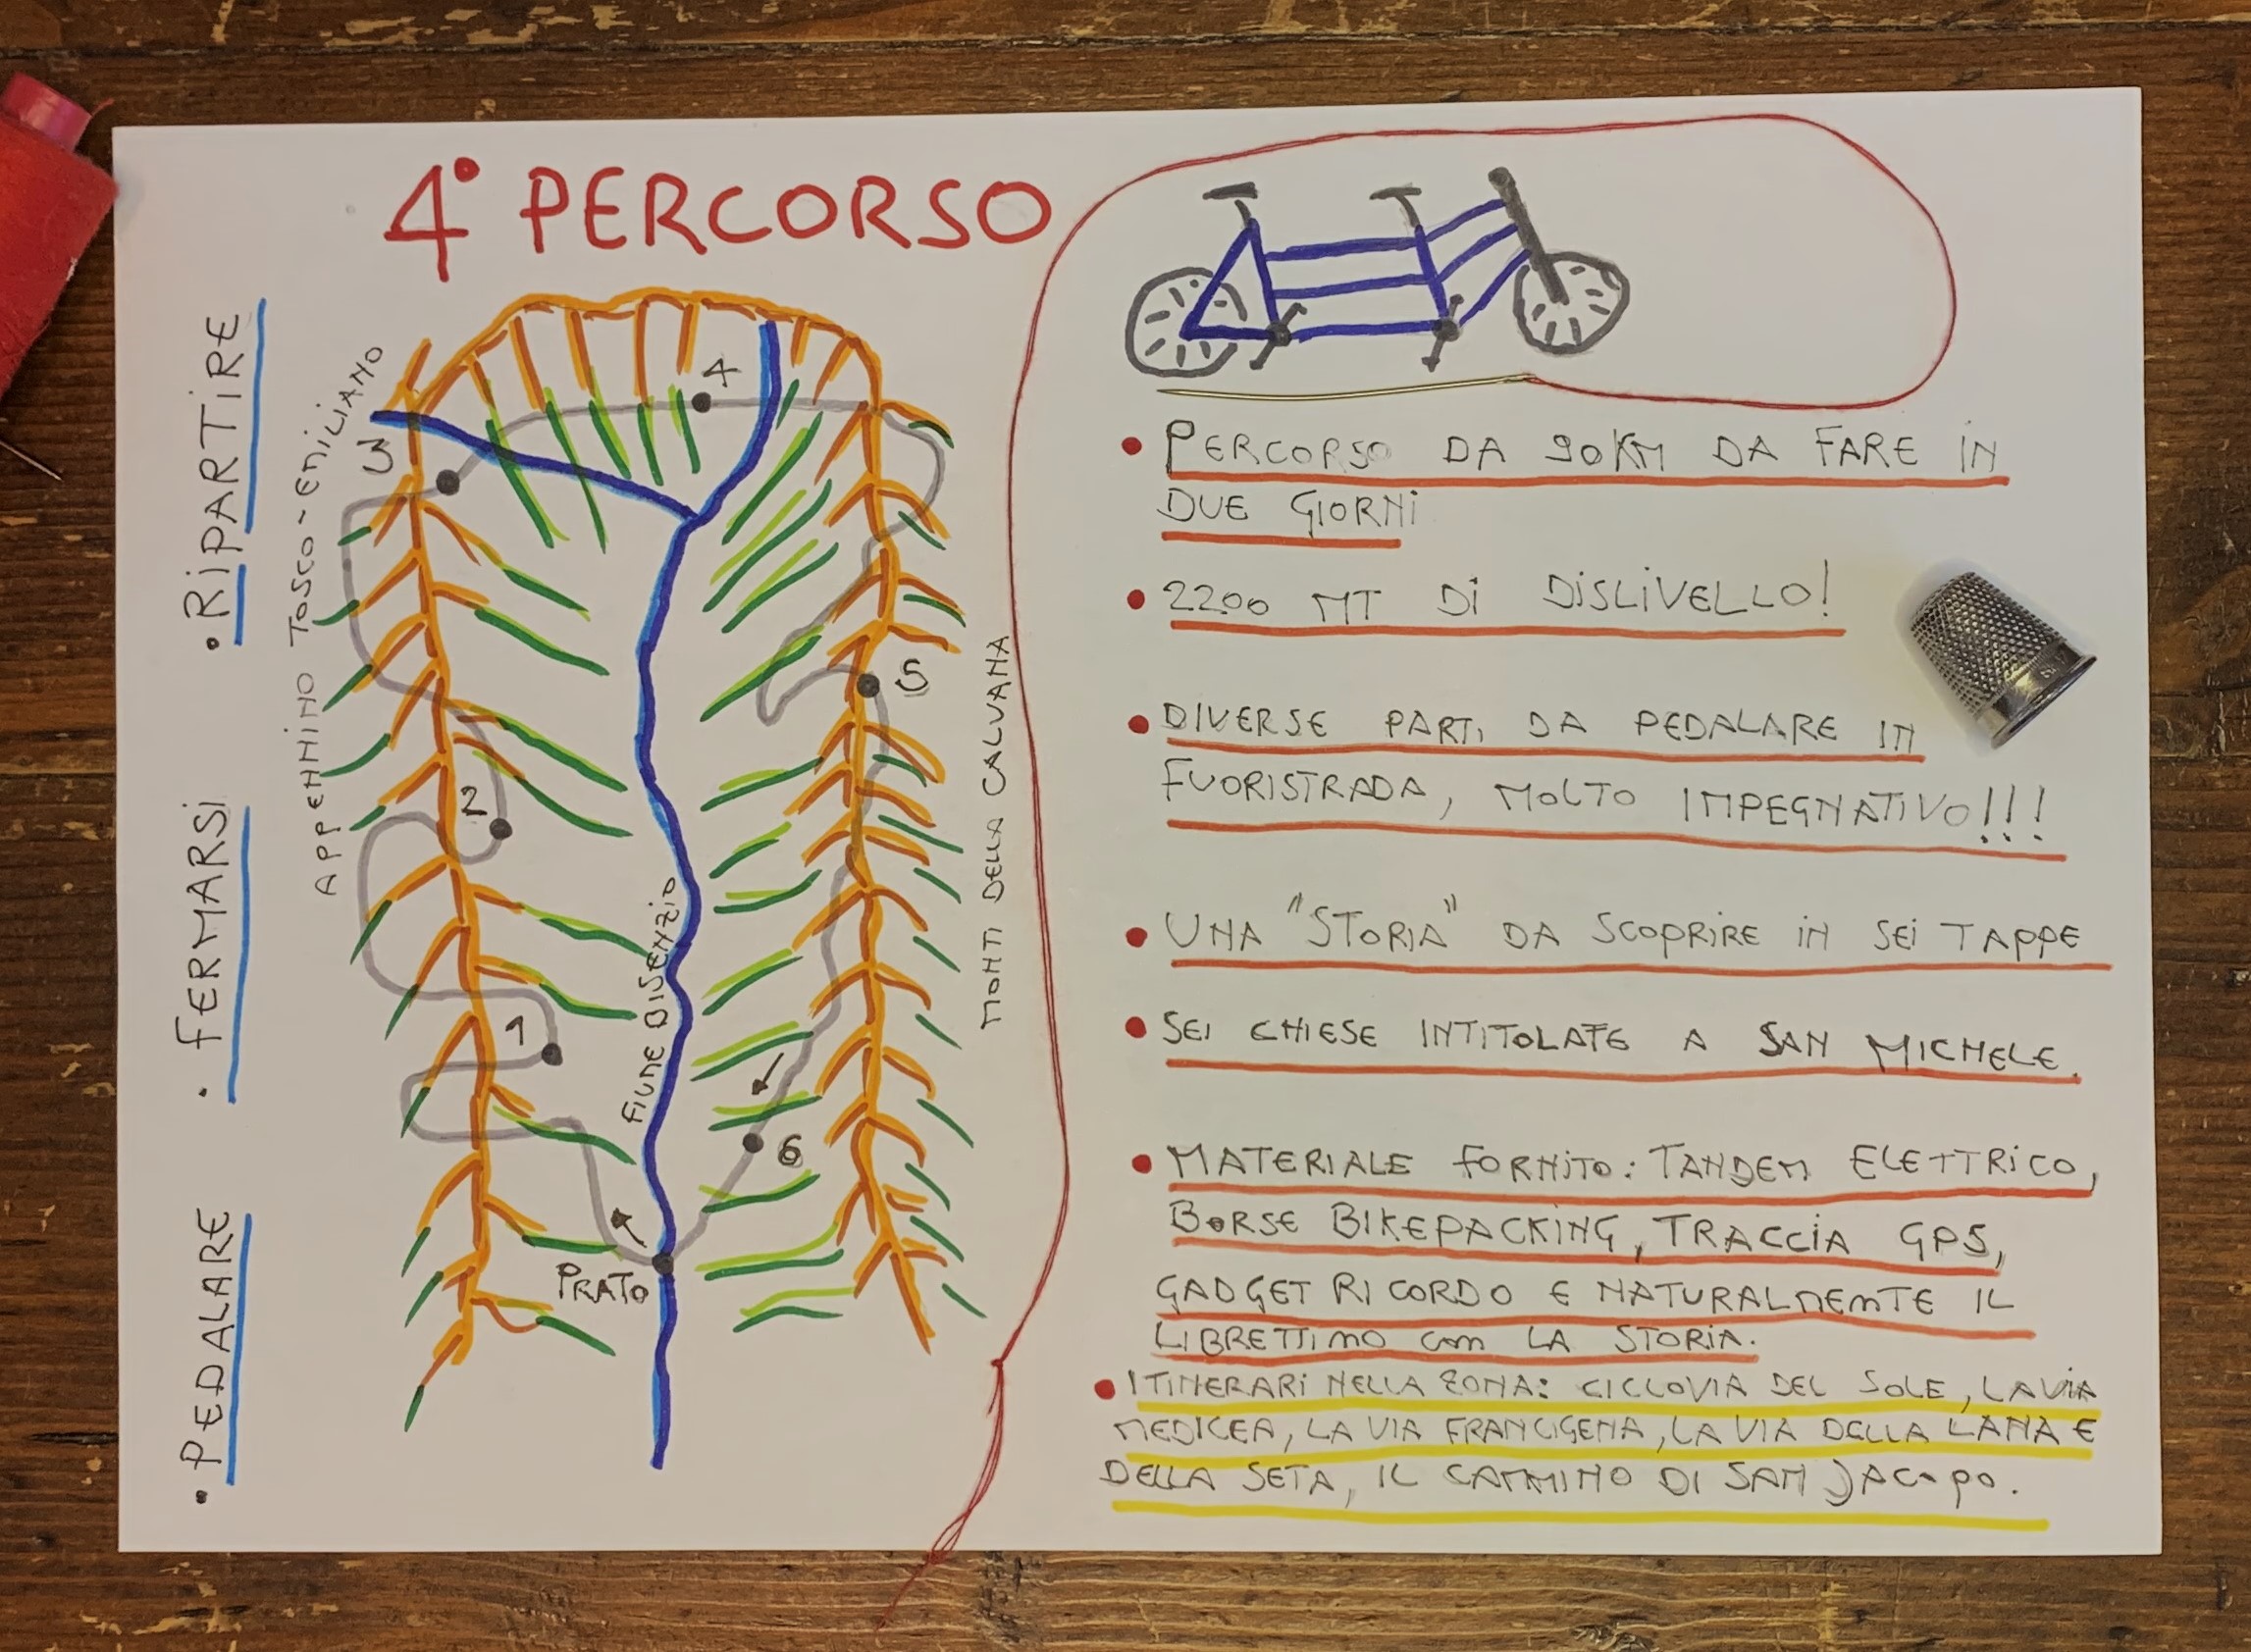 4° PERCORSO
• PEDALARE
• FERMARSI
• RIPARTIRE
APPENNINO TOSCO-EMILIANO
3
4
2
5
1
6
FIUME BISENZIO
MONTI DELLA CALVANA
PRATO
• PERCORSO DA 90KM DA FARE IN
DUE GIORNI
• 2200 MT DI DISLIVELLO!
• DIVERSE PARTI DA PEDALARE IN
FUORISTRADA, MOLTO IMPEGNATIVO!!!
• UNA "STORIA" DA SCOPRIRE IN SEI TAPPE
• SEI CHIESE INTITOLATE A SAN MICHELE.
• MATERIALE FORNITO: TANDEM ELETTRICO,
BORSE BIKEPACKING, TRACCIA GPS,
GADGET RICORDO E NATURALMENTE IL
LIBRETTINO CON LA STORIA.
• ITINERARI NELLA ZONA: CICLOVIA DEL SOLE, LA VIA
MEDICEA, LA VIA FRANCIGENA, LA VIA DELLA LANA E
DELLA SETA, IL CAMMINO DI SAN JACOPO.